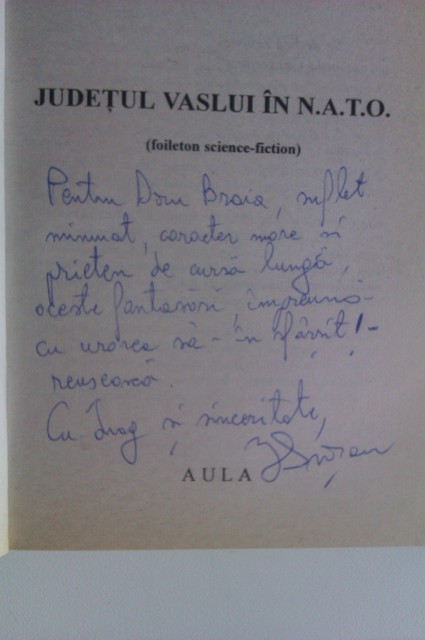 JUDEȚUL VASLUI ÎN N.A.T.O.
(foileton science-fiction)
Pentru Doru Braia, suflet
minunat, caracter mare și
prieten de cursă lungă,
aceste fantasări, împreună
cu urarea să - în sfârșit! -
reușească.
Cu drag și sinceritate,
AULA